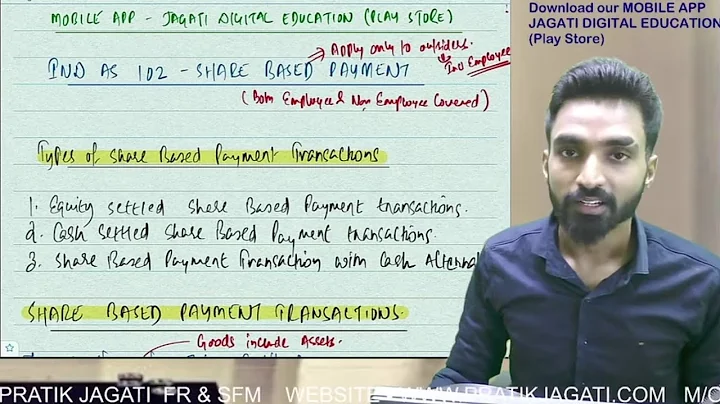 MOBILE APP - JAGATI DIGITAL EDUCATION (PLAY STORE)
Download our MOBILE APP
JAGATI DIGITAL EDUCATION
(Play Store)
→ Apply only to outsiders.
↳ Incl Employee
IND AS 102 - SHARE BASED PAYMENT
(Both Employee & Non Employee Covered)
Types of Share Based Payment Transactions
1. Equity settled Share Based Payment transactions.
2. Cash settled Share Based Payment transactions.
3. Share Based Payment Transaction with Cash Alternat
SHARE BASED PAYMENT TRANSACTIONS.
Goods include Assets.
PRATIK JAGATI FR & SFM WEBSITE WWW.PRATIKJAGATI.COM M/O